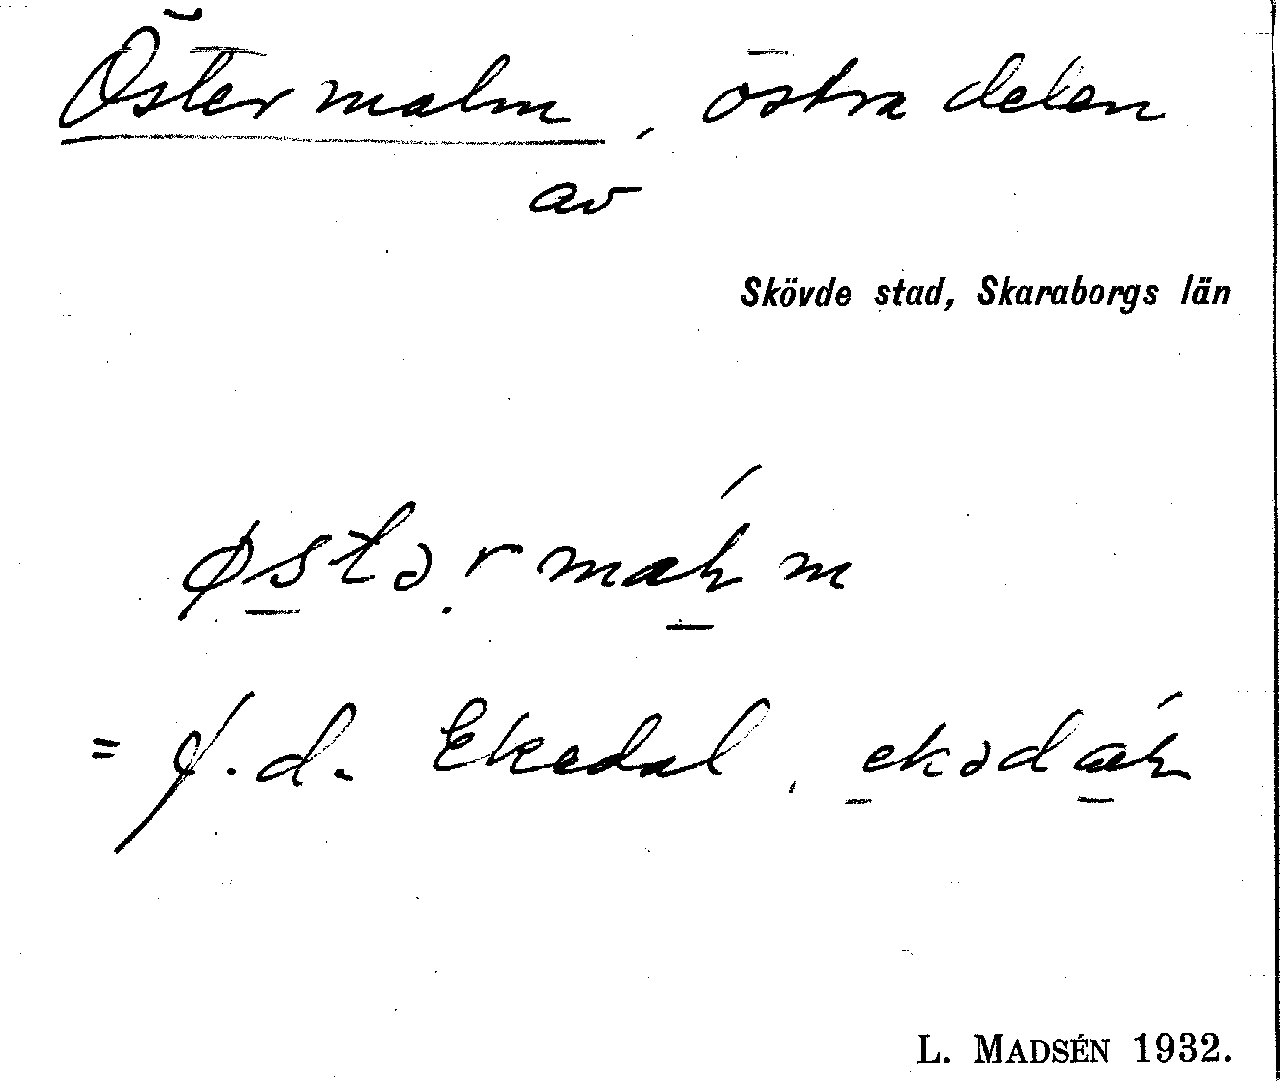 Östermalm, östra delen
av
Skövde stad, Skaraborgs län
= f.d. Ekedal,
L. MADSÉN 1932.